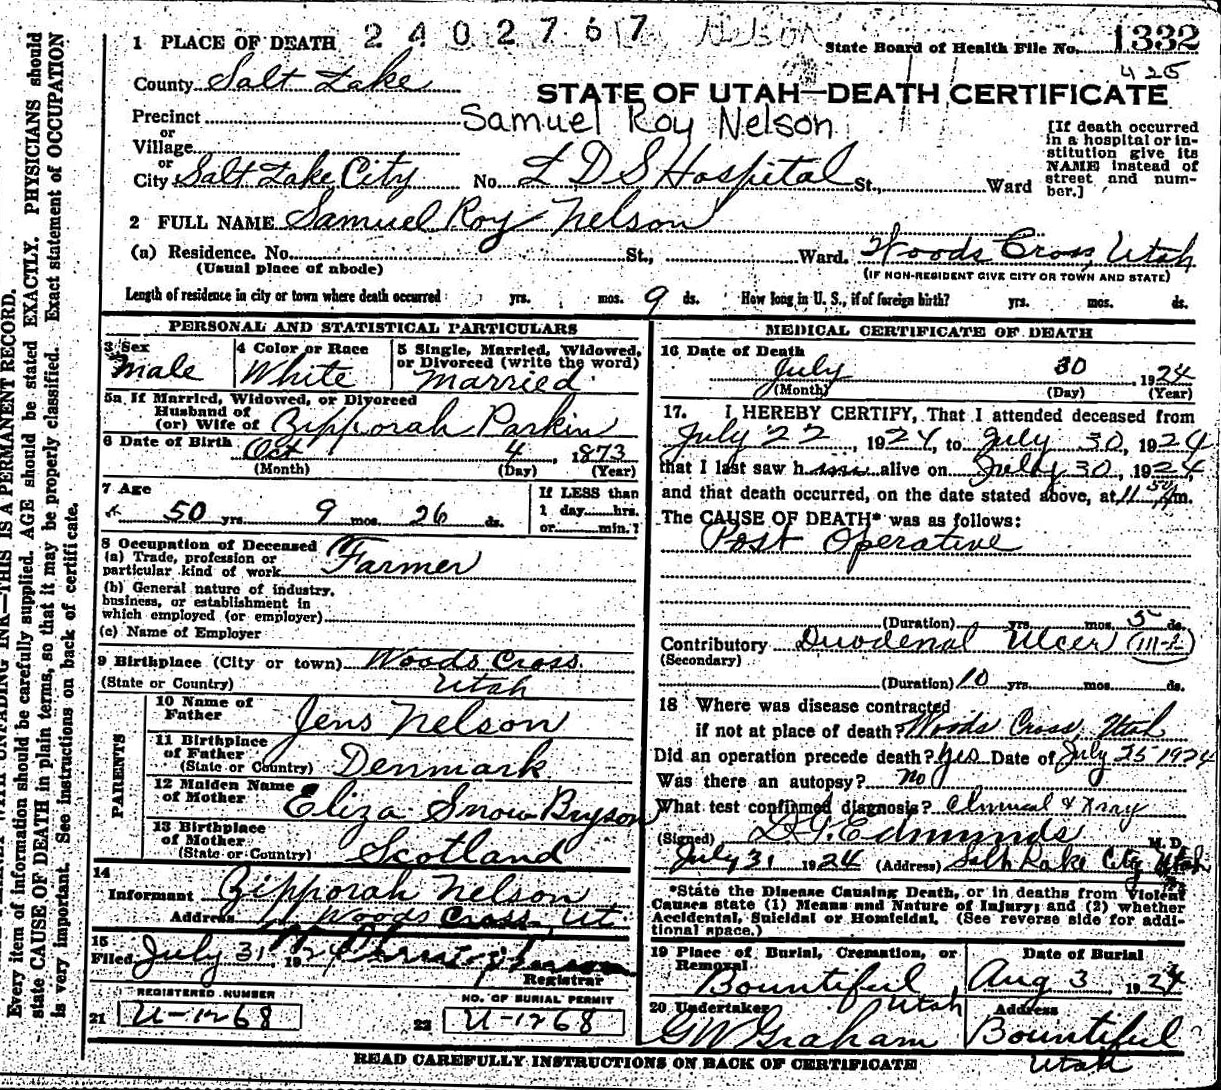 2402767 Nelson
1 PLACE OF DEATH
State Board of Health File No. 1332
425
County Salt Lake
STATE OF UTAH—DEATH CERTIFICATE
Precinct
Samuel Roy Nelson
or
Village
or
City Salt Lake City No. L D S Hospital St., Ward
[If death occurred
in a hospital or in-
stitution give its
NAME instead of
street and num-
ber.]
2 FULL NAME Samuel Roy Nelson
(a) Residence. No. St., Ward. Woods Cross, Utah
(Usual place of abode)
(IF NON-RESIDENT GIVE CITY OR TOWN AND STATE)
Length of residence in city or town where death occurred yrs. mos. 9 ds. How long in U. S., if of foreign birth? yrs. mos. ds.
PERSONAL AND STATISTICAL PARTICULARS
3 Sex
Male
4 Color or Race
White
5 Single, Married, Widowed,
or Divorced (write the word)
Married
5a If Married, Widowed, or Divorced
Husband of
(or) Wife of Zipporah Parkin
6 Date of Birth Oct 4, 1873
(Month) (Day) (Year)
7 Age
50 yrs. 9 mos. 26 ds.
If LESS than
1 day hrs.
or min.?
8 Occupation of Deceased
(a) Trade, profession or
particular kind of work Farmer
(b) General nature of industry,
business, or establishment in
which employed (or employer)
(c) Name of Employer
9 Birthplace (City or town) Woods Cross
(State or Country) Utah
PARENTS
10 Name of
Father Jens Nelson
11 Birthplace
of Father
(State or Country) Denmark
12 Maiden Name
of Mother Eliza Snow Bryson
13 Birthplace
of Mother
(State or Country) Scotland
14
Informant Zipporah Nelson
Address Woods Cross, Ut.
15
Filed July 31, 1924
Registrar
REGISTERED NUMBER
21 U-1268
NO. OF BURIAL PERMIT
22 U-1268
MEDICAL CERTIFICATE OF DEATH
16 Date of Death
July 30, 1924
(Month) (Day) (Year)
17. I HEREBY CERTIFY, That I attended deceased from
July 22, 1924, to July 30, 1924
that I last saw h im alive on July 30, 1924,
and that death occurred, on the date stated above, at 11 50 m.
The CAUSE OF DEATH* was as follows:
Post Operative
(Duration) yrs. mos. 5 ds.
Contributory Duodenal Ulcer
(Secondary)
(Duration) 10 yrs. mos. ds.
18 Where was disease contracted
if not at place of death? Woods Cross, Utah
Did an operation precede death? Yes Date of July 25 1924
Was there an autopsy? No
What test confirmed diagnosis? Clinical & Xray
(Signed) Edmunds M. D.
July 31 1924 (Address) Salt Lake City Utah
*State the Disease Causing Death, or in deaths from Violent
Causes state (1) Means and Nature of Injury; and (2) whether
Accidental, Suicidal or Homicidal. (See reverse side for addi-
tional space.)
19 Place of Burial, Cremation, or
Removal
Bountiful, Utah
Date of Burial
Aug 3, 1924
20 Undertaker
G W Graham
Address
Bountiful
Utah
READ CAREFULLY INSTRUCTIONS ON BACK OF CERTIFICATE
UNFADING INK—THIS IS A PERMANENT RECORD.
Every item of information should be carefully supplied. AGE should be stated EXACTLY. PHYSICIANS should
state CAUSE OF DEATH in plain terms, so that it may be properly classified. Exact statement of OCCUPATION
is very important. See instructions on back of certificate.